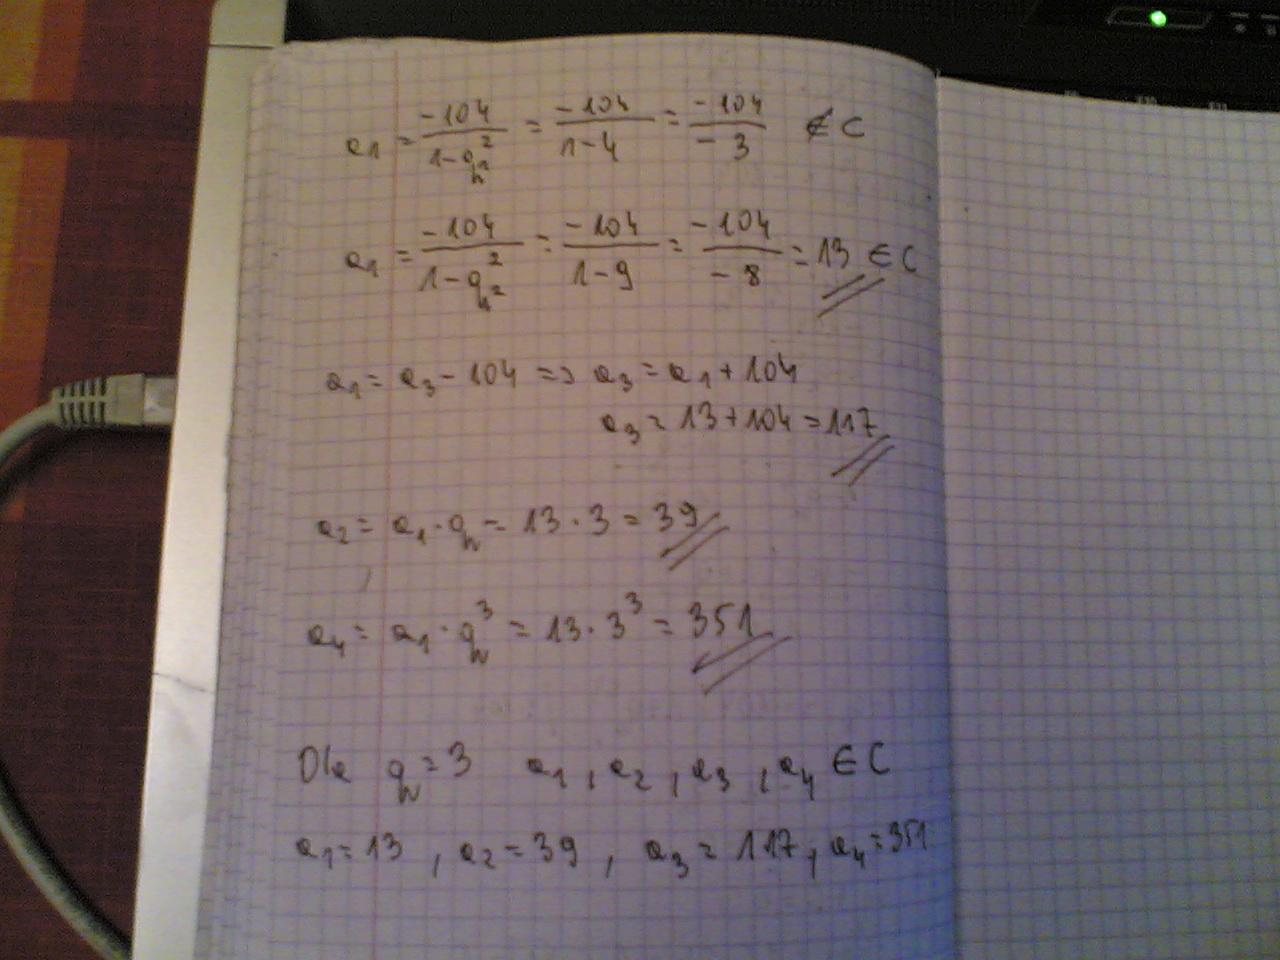 a₁ = -104/(1-q²) = -104/(1-4) = -104/-3 ∉ C
a₁ = -104/(1-q²) = -104/(1-9) = -104/-8 = 13 ∈ C
a₁ = a₃ - 104 => a₃ = a₁ + 104
a₃ = 13 + 104 = 117
a₂ = a₁ · q = 13 · 3 = 39
a₄ = a₁ · q³ = 13 · 3³ = 351
Dla q = 3 a₁, a₂, a₃, a₄ ∈ C
a₁ = 13, a₂ = 39, a₃ = 117, a₄ = 351